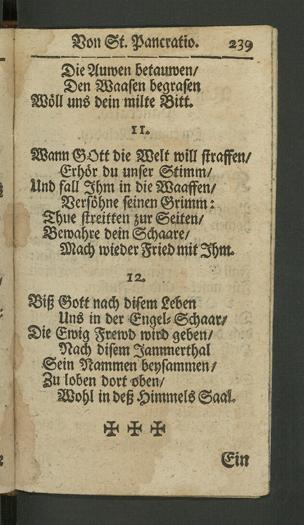 Von St. Pancratio. 239
Die Auwen betauwen/
Den Waasen begrasen
Wöll uns dein milte Bitt.
11.
Wann GOtt die Welt will straffen/
Erhör du unser Stimm/
Und fall Ihm in die Waaffen/
Versöhne seinen Grimm:
Thue streitten zur Seiten/
Bewahre dein Schaare/
Mach wieder Fried mit Ihm.
12.
Biß Gott nach disem Leben
Uns in der Engel-Schaar/
Die Ewig Frewd wird geben/
Nach disem Jammerthal
Sein Nammen beysammen/
Zu loben dort oben/
Wohl in deß Himmels Saal.
✠ ✠ ✠
Ein